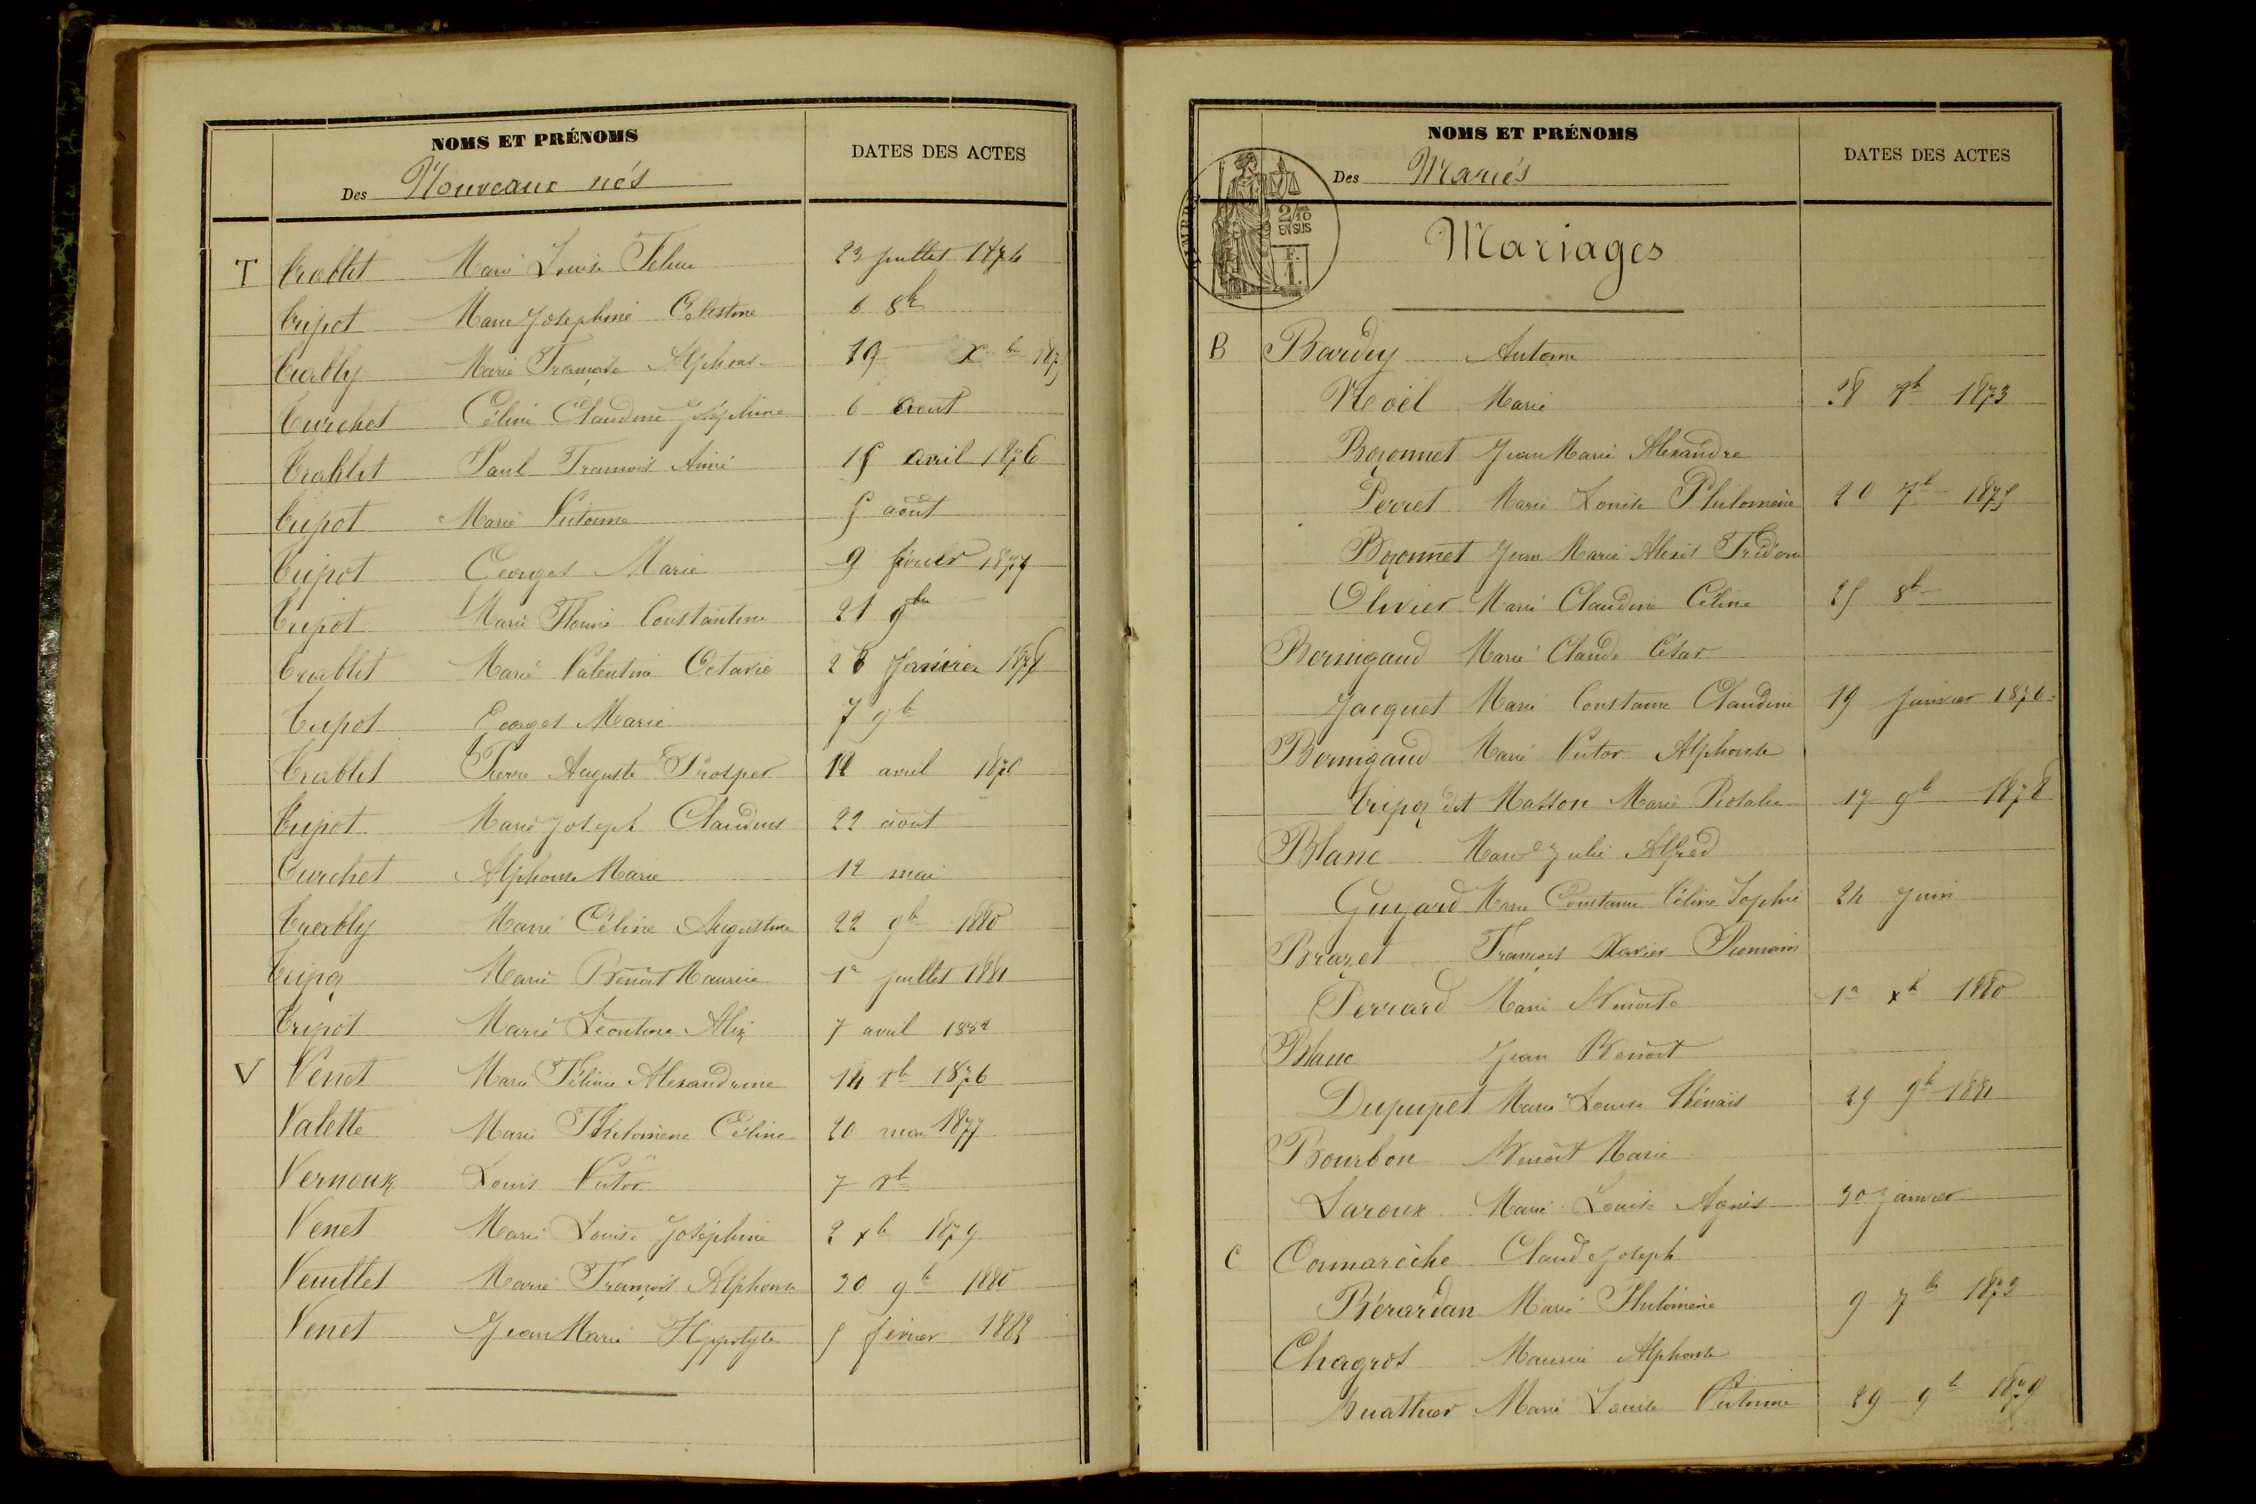 NOMS ET PRÉNOMS
DATES DES ACTES
Des Nouveaux nés
T Trablet Marie Louise 23 juillet
Tripot Marie Joséphine Célestine 6 8b
Trably Marie Françoise Alphons 19 Xbre
Turchet Céline Claudine Joséphine 6 Aout
Trablet Paul François Aimé 15 avril 1876
Tripot Marie Victorine 5 août
Tripot Georges Marie 9 février 1877
Tripot Marie Constantine 21 9bre
Trablet Marie Valentine Octavie 28 Janvier 1878
Tripot Georges Marie 7 9b
Trablet Pierre Auguste Prosper 12 avril
Tripot Marie Joseph Claudius 22 août
Turchet Alphonse Marie 12 mai
Trably Marie Céline Augustine 22 9b 1880
Tripoz Marie Benoit Maurice 1er juillet 1881
Tripot Marie Léontine Alix 7 avril 1882
V Venet Marie Féline Alexandrine 14 1876
Valette Marie Philomène Céline 20 mai 1877
Vernoux Louis Victor 7
Venet Marie Louise Joséphine 2 xb 1879
Veuillet Marie François Alphonse 20 9b 1880
Venet Jean Marie Hippolyte 5 février 1882
NOMS ET PRÉNOMS
DATES DES ACTES
Des Mariés
TIMBRE
2/10
EN SUS
F.
1.
Mariages
B Bardey Antoine
Noël Marie 1873
Bozonnet Jean Marie Alexandre
Perret Marie Louise Philomène 20 7b 1875
Bozonnet Jean Marie Alexis
Olivier Marie Claudine Céline 25 8b
Bernigaud Marie Claude César
Jacquet Marie Constance Claudine 19 Janvier 1876
Bernigaud Marie Victor Alphonse
Tripoz dit Masson Marie Rosalie 17 9b 1878
Blanc Marie Julie Alfred
Guyard Marie Constance Céline Sophie 24 Juin
Brazet François Xavier Romain
Perrard Marie Benoite 1er xb 1880
Blanc Jean Benoit
Dupupet Marie Louise 29 9b 1881
Bourbon Benoit Marie
Laroux Marie Louise Agnès 30 Janvier
C Cornarèche Claude Joseph
Bérardan Marie Philomène 9 7b
Chagros Maurice Alphonse
Marie Louise Victorine 29 9b